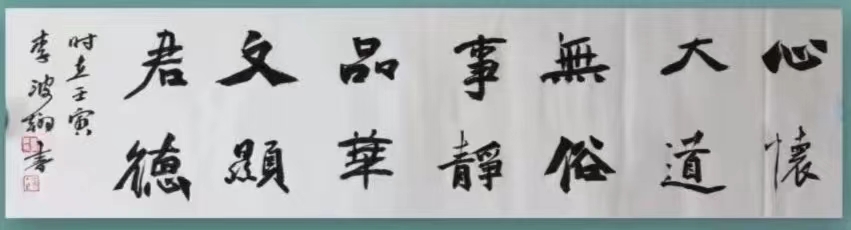 心懷
大道
無俗
事靜
品華
文顯
君德
时在壬寅
李波翔书